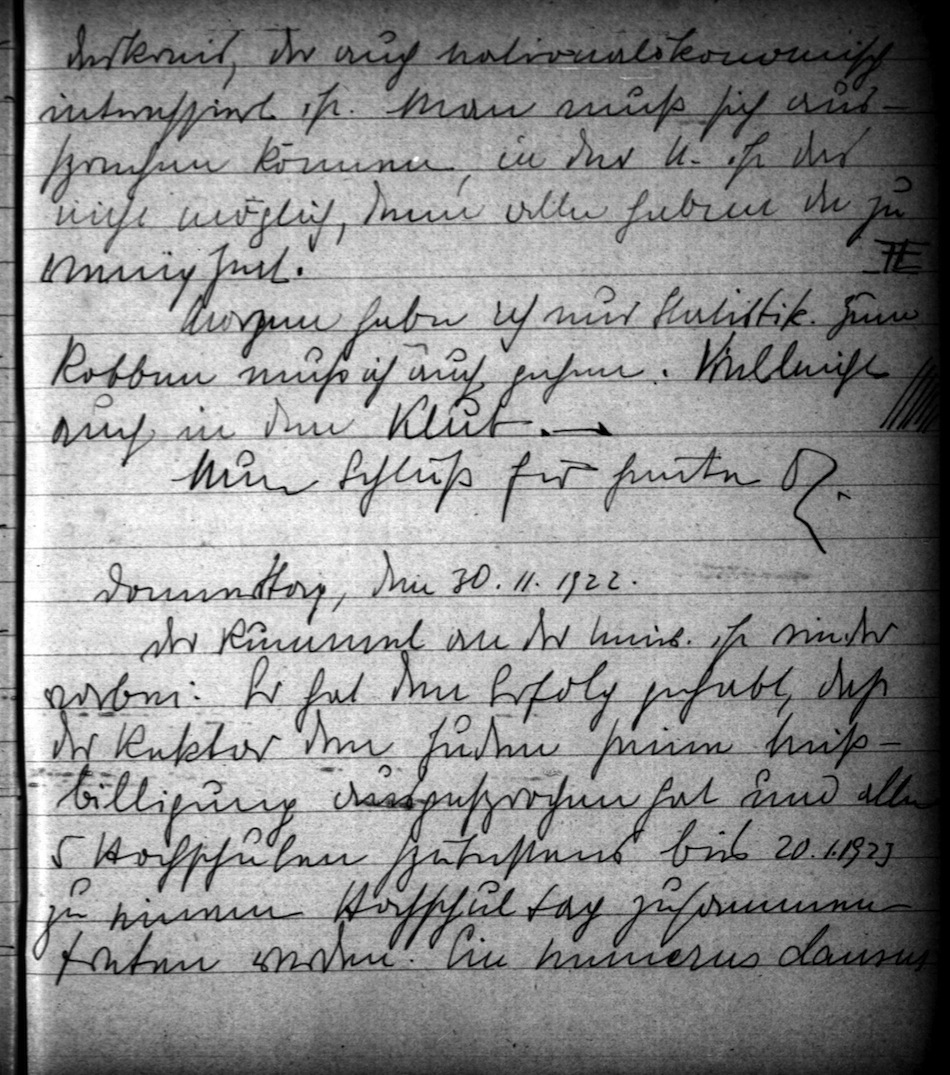 derkreis, der auch nationalökonomisch
interessiert ist. Man muß sich aus-
sprechen können, in der U. ist das
nicht möglich, denn alle haben da zu
wenig Zeit.
II
Morgen habe ich nur Statistik. Zum
Robben muß ich auch gehen. Vielleicht
auch in den Klub.
Nun Schluß für heute
Donnerstag, den 30.11.1922.
Der Rummel an der Univ. ist wieder
vorbei. Er hat den Erfolg gehabt, daß
der Rektor den Juden seine Miß-
billigung ausgesprochen hat und alle
5 Hochschulen spätestens bis 20.1.1923
zu einem Hochschultag zusammen-
treten werden. Ein numerus clausus